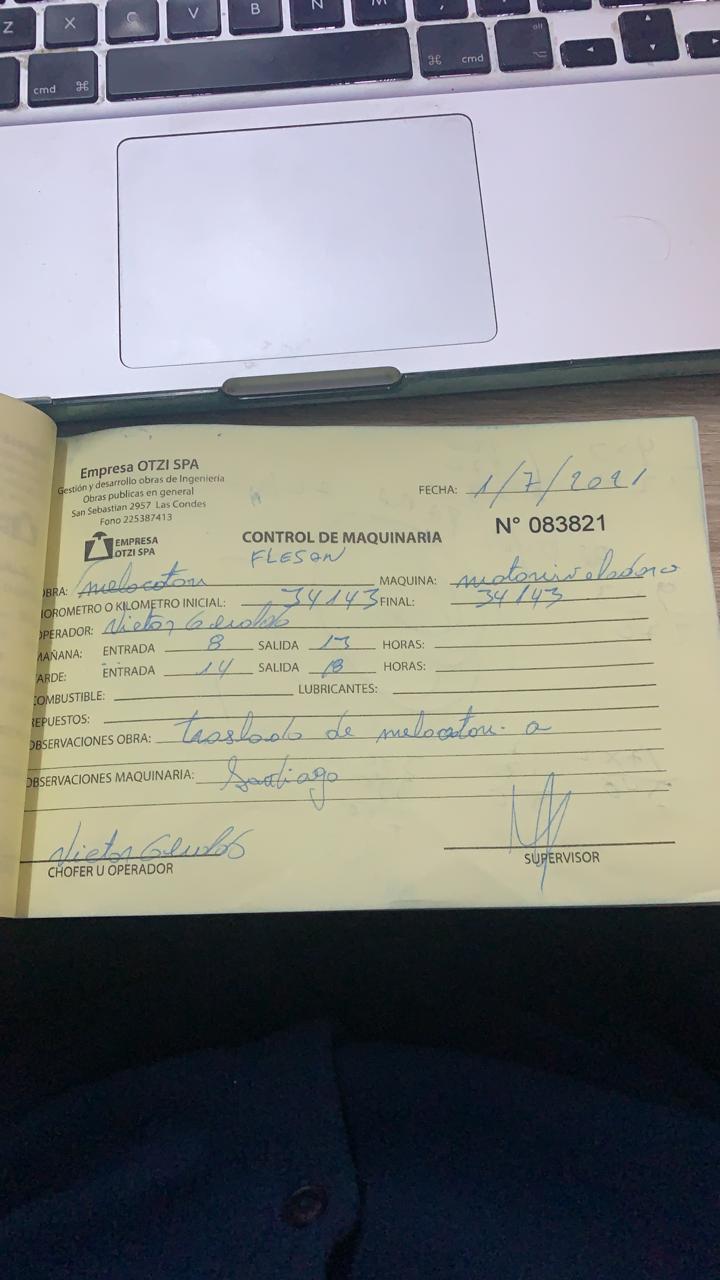 Z X C V B N M
cmd ⌘ ⌘ cmd alt ⌥
Empresa OTZI SPA
Gestión y desarrollo obras de Ingeniería
Obras publicas en general
San Sebastian 2957 Las Condes
Fono 225387413
FECHA: 1/7/2021
N° 083821
EMPRESA
OTZI SPA
CONTROL DE MAQUINARIA
FLESAN
OBRA: melocoton MAQUINA: motoniveladora
HOROMETRO O KILOMETRO INICIAL: 34143 FINAL: 34143
OPERADOR: Victor
MAÑANA: ENTRADA 8 SALIDA 13 HORAS:
TARDE: ENTRADA 14 SALIDA 18 HORAS:
COMBUSTIBLE: LUBRICANTES:
REPUESTOS:
OBSERVACIONES OBRA: traslado de melocoton a
OBSERVACIONES MAQUINARIA: Santiago
Victor
CHOFER U OPERADOR
SUPERVISOR